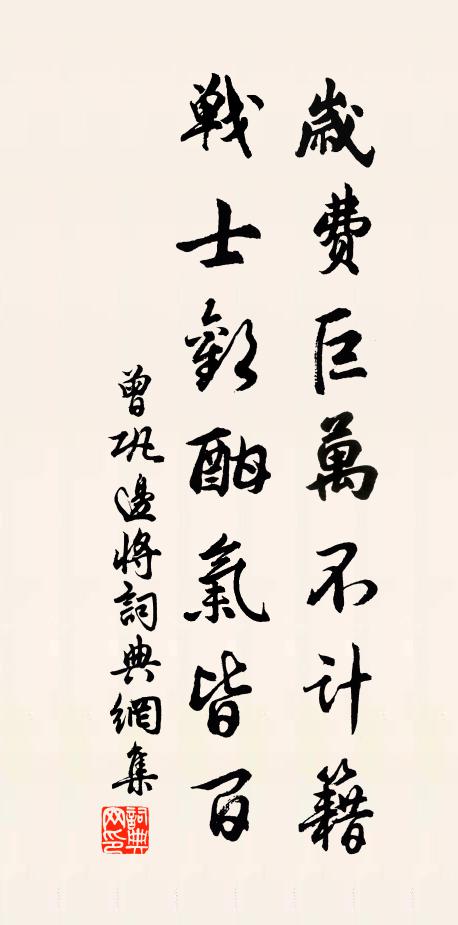 歲費巨萬不計籍
戰士歡酣氣皆百
曾巩邊將詞典網集
詞典网印